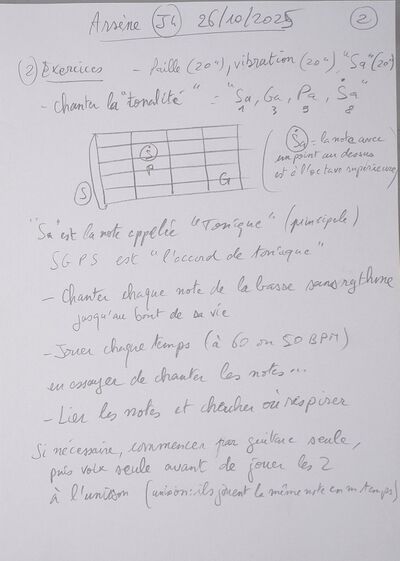 Arsène J4 26/10/2025 2
② Exercices - Paille (20"), vibration (20"), "Sa" (20")
- Chanter la "tonalité" = "Sa, Ga, Pa, Ṡa"
1 3 5 8
Ṡ
P
G
S
(Ṡa = la note avec
un point au dessus
est à l'octave supérieure)
"Sa" est la note appelée "Tonique" (principale)
SGPS est "l'accord de tonique"
- Chanter chaque note de la basse sans rythme
jusqu'au bout de sa vie
- Jouer chaque temps (à 60 ou 50 BPM)
en essayer de chanter les notes...
- Lier les notes et chercher où respirer
Si nécessaire, commencer par guitare seule,
puis voix seule avant de jouer les 2
à l'unisson (unisson: ils jouent la même note en m temps)